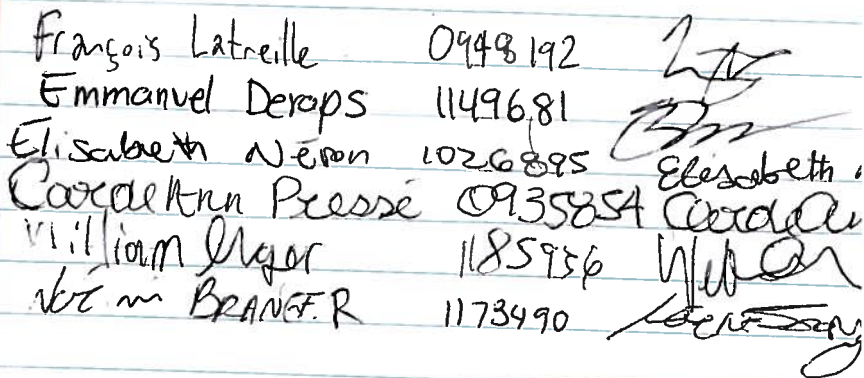 François Latreille 0948192
Emmanuel Deraps 1149681
Elisabeth Néron 1026895 Elisabeth
Carole Ann Pressé 0935854
William 1185956
BRANGER 1173490